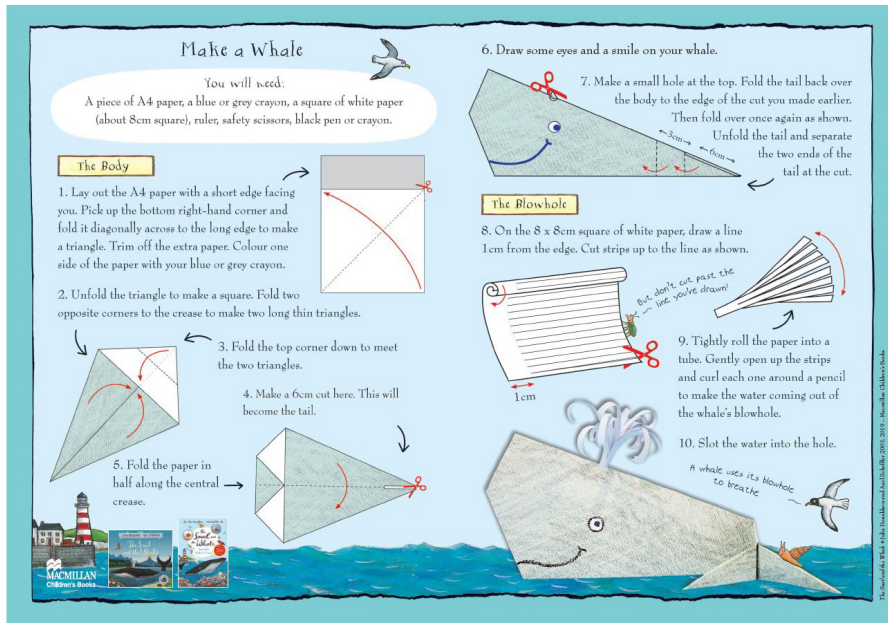 Make a Whale
You will need:
A piece of A4 paper, a blue or grey crayon, a square of white paper
(about 8cm square), ruler, safety scissors, black pen or crayon.
The Body
1. Lay out the A4 paper with a short edge facing
you. Pick up the bottom right-hand corner and
fold it diagonally across to the long edge to make
a triangle. Trim off the extra paper. Colour one
side of the paper with your blue or grey crayon.
2. Unfold the triangle to make a square. Fold two
opposite corners to the crease to make two long thin triangles.
3. Fold the top corner down to meet
the two triangles.
4. Make a 6cm cut here. This will
become the tail.
5. Fold the paper in
half along the central
crease.
MACMILLAN
Children's Books
The Snail
and the Whale
The
Snail
and the
Whale
6. Draw some eyes and a smile on your whale.
7. Make a small hole at the top. Fold the tail back over
the body to the edge of the cut you made earlier.
Then fold over once again as shown.
Unfold the tail and separate
the two ends of the
tail at the cut.
3cm
6cm
The Blowhole
8. On the 8 x 8cm square of white paper, draw a line
1cm from the edge. Cut strips up to the line as shown.
But don't cut past the
line you've drawn!
1cm
9. Tightly roll the paper into a
tube. Gently open up the strips
and curl each one around a pencil
to make the water coming out of
the whale's blowhole.
10. Slot the water into the hole.
A whale uses its blowhole
to breathe
The Snail and the Whale © Julia Donaldson and Axel Scheffler 2003, 2019 – Macmillan Children's Books